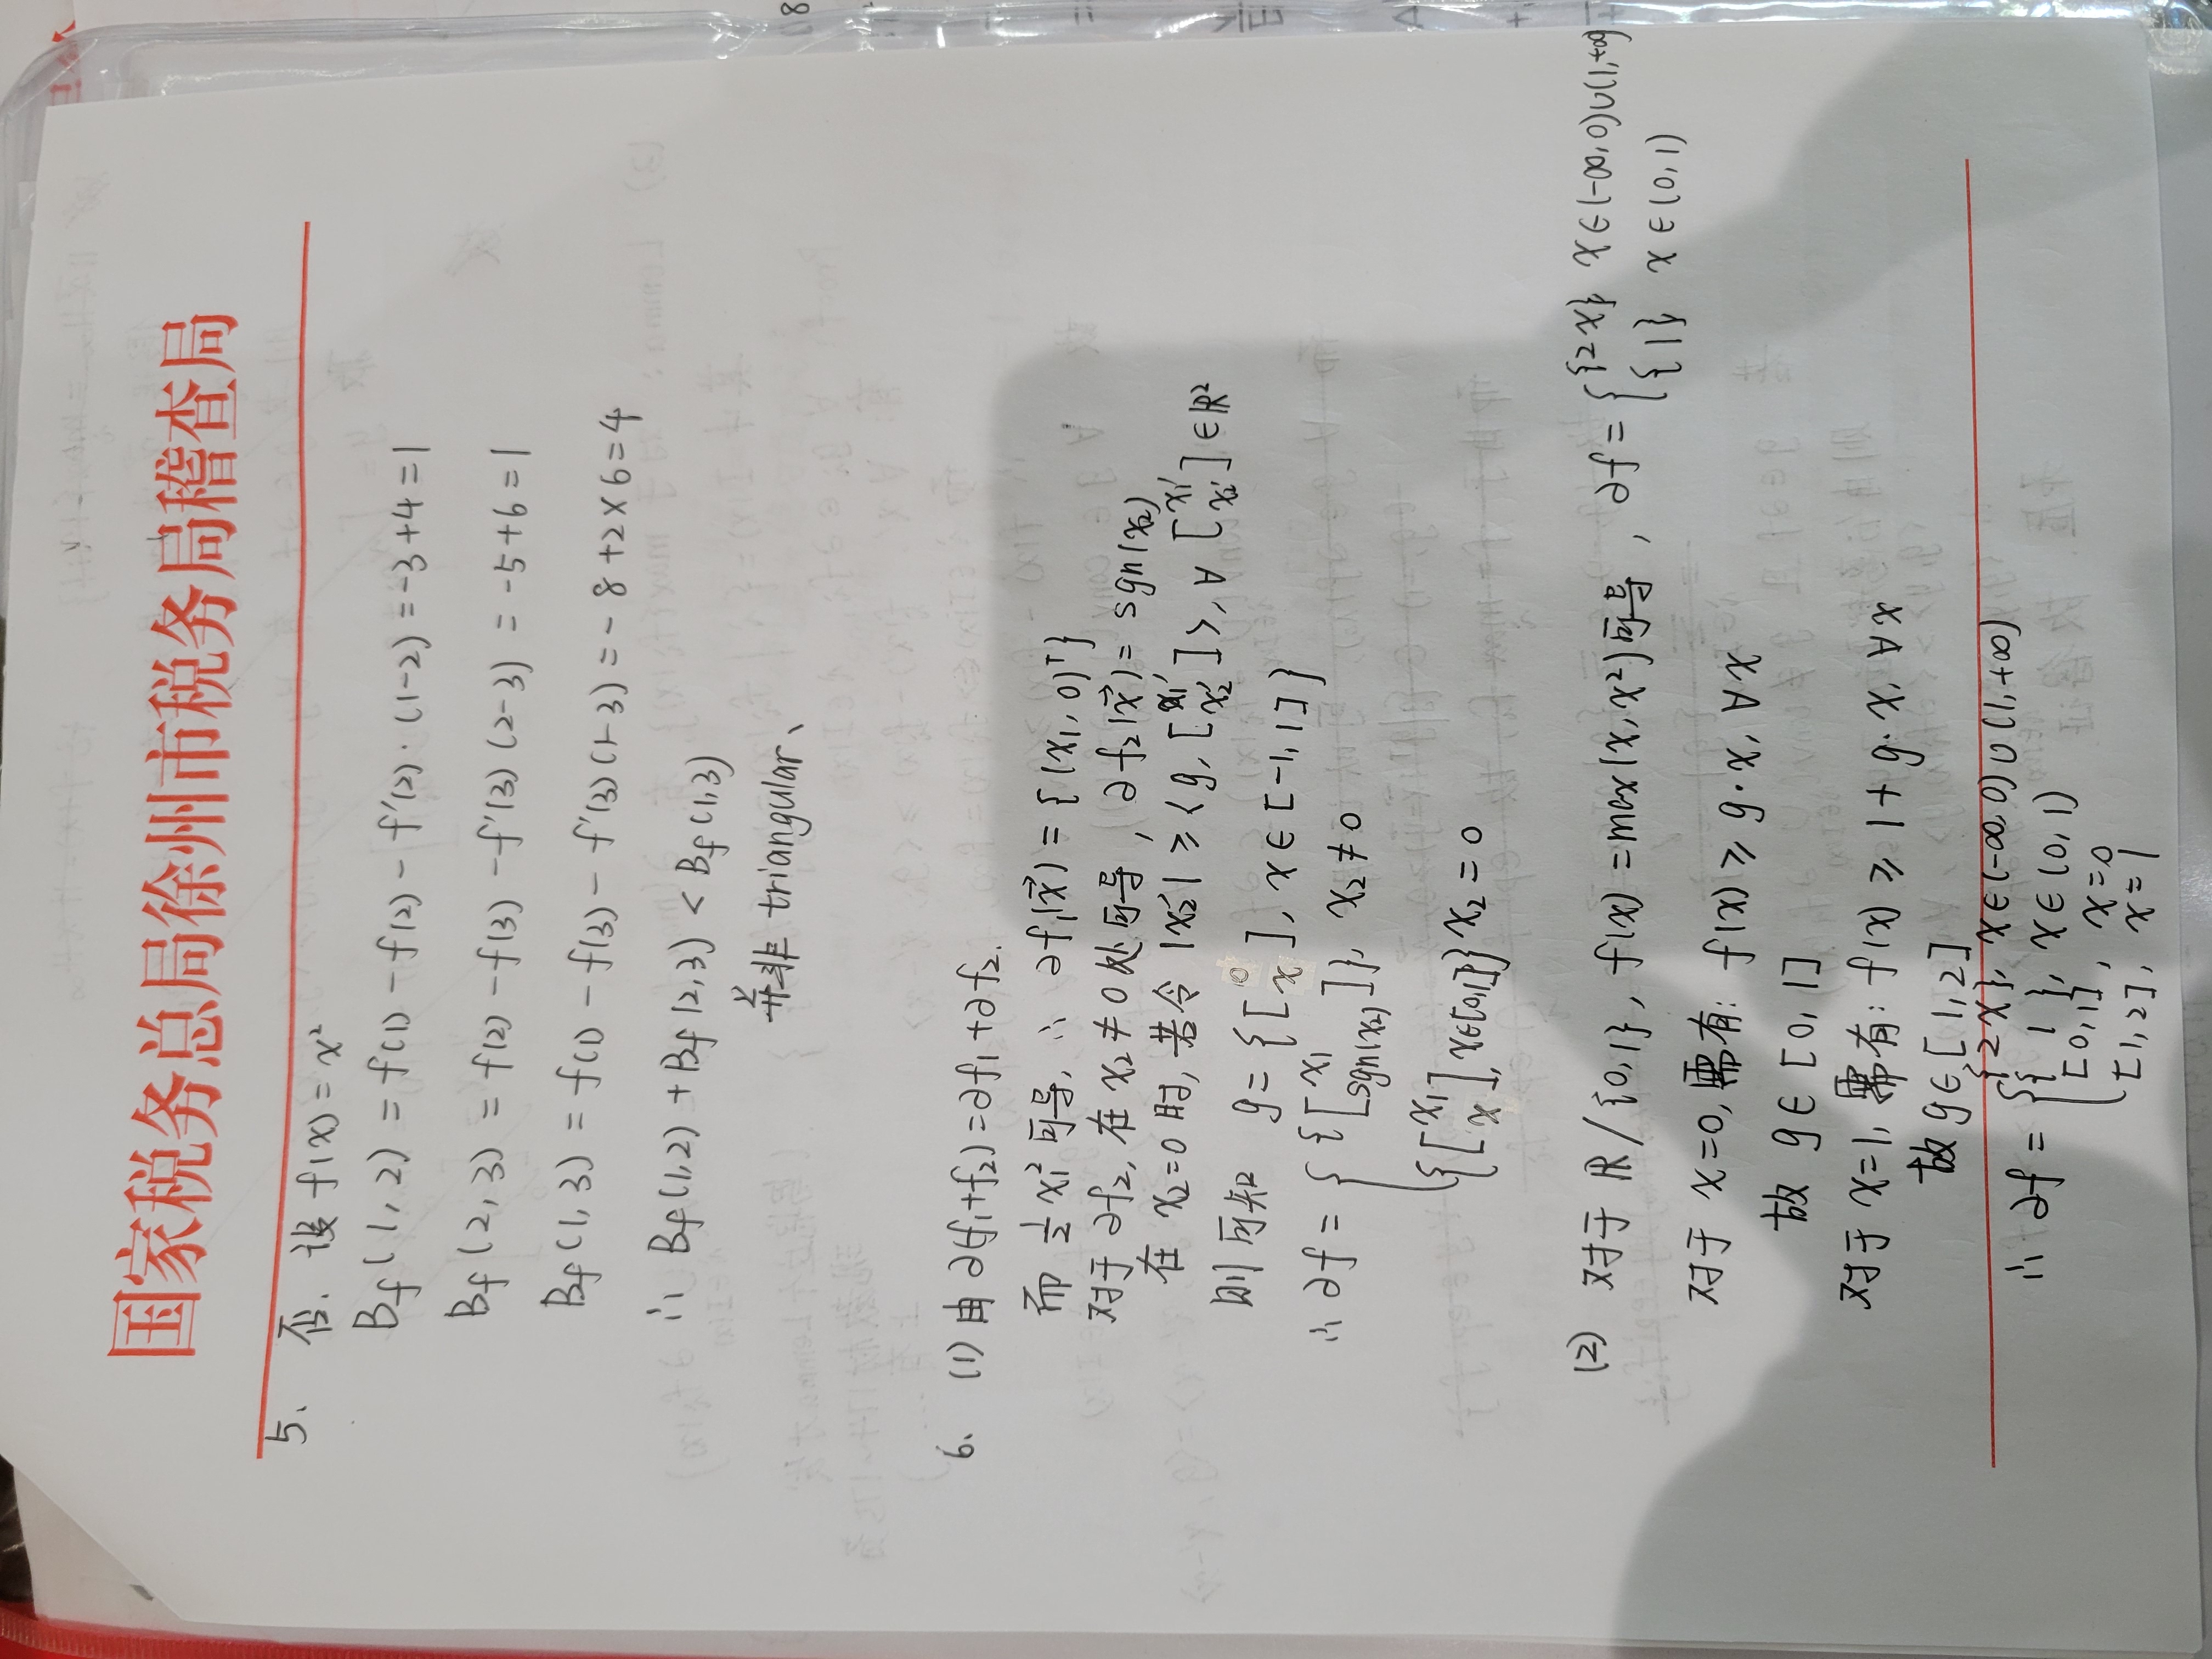 国家税务总局徐州市税务局稽查局
5. 否. 设 f(x) = x²
B_f(1, 2) = f(1) - f(2) - f'(2)·(1-2) = -3+4 = 1
B_f(2, 3) = f(2) - f(3) - f'(3)(2-3) = -5+6 = 1
B_f(1, 3) = f(1) - f(3) - f'(3)(1-3) = -8+2×6 = 4
∴ B_f(1,2) + B_f(2,3) < B_f(1,3)
并非 triangular、
6. (1) 由 ∂(f₁+f₂) = ∂f₁ + ∂f₂.
而 ½x₁² 可导, ∴ ∂f₁(x⃗) = {(x₁, 0)ᵀ}
对于 ∂f₂, 在 x₂ ≠ 0 处可导, ∂f₂(x⃗) = sgn(x₂)
在 x₂=0 时, 若令 |x₂'| ≥ ⟨g, [x₁' x₂']⟩, ∀ [x₁' x₂'] ∈ ℝ²
则可知 g = {[0 x], x ∈ [-1, 1]}
∴ ∂f = { {[x₁ sgn(x₂)]}, x₂ ≠ 0
{[x₁ x], x∈[0,1]} x₂ = 0
(2) 对于 ℝ/{0,1}, f(x) = max(x, x²) 可导, ∂f = { {2x} x∈(-∞,0)∪(1,+∞)
{1} x∈(0,1)
对于 x=0, 需有: f(x) ≥ g·x, ∀x
故 g∈[0,1]
对于 x=1, 需有: f(x) ≥ 1+g·x, ∀x
故 g∈[1,2]
∴ ∂f = { {2x}, x∈(-∞,0)∪(1,+∞)
{1}, x∈(0,1)
[0,1], x=0
[1,2], x=1